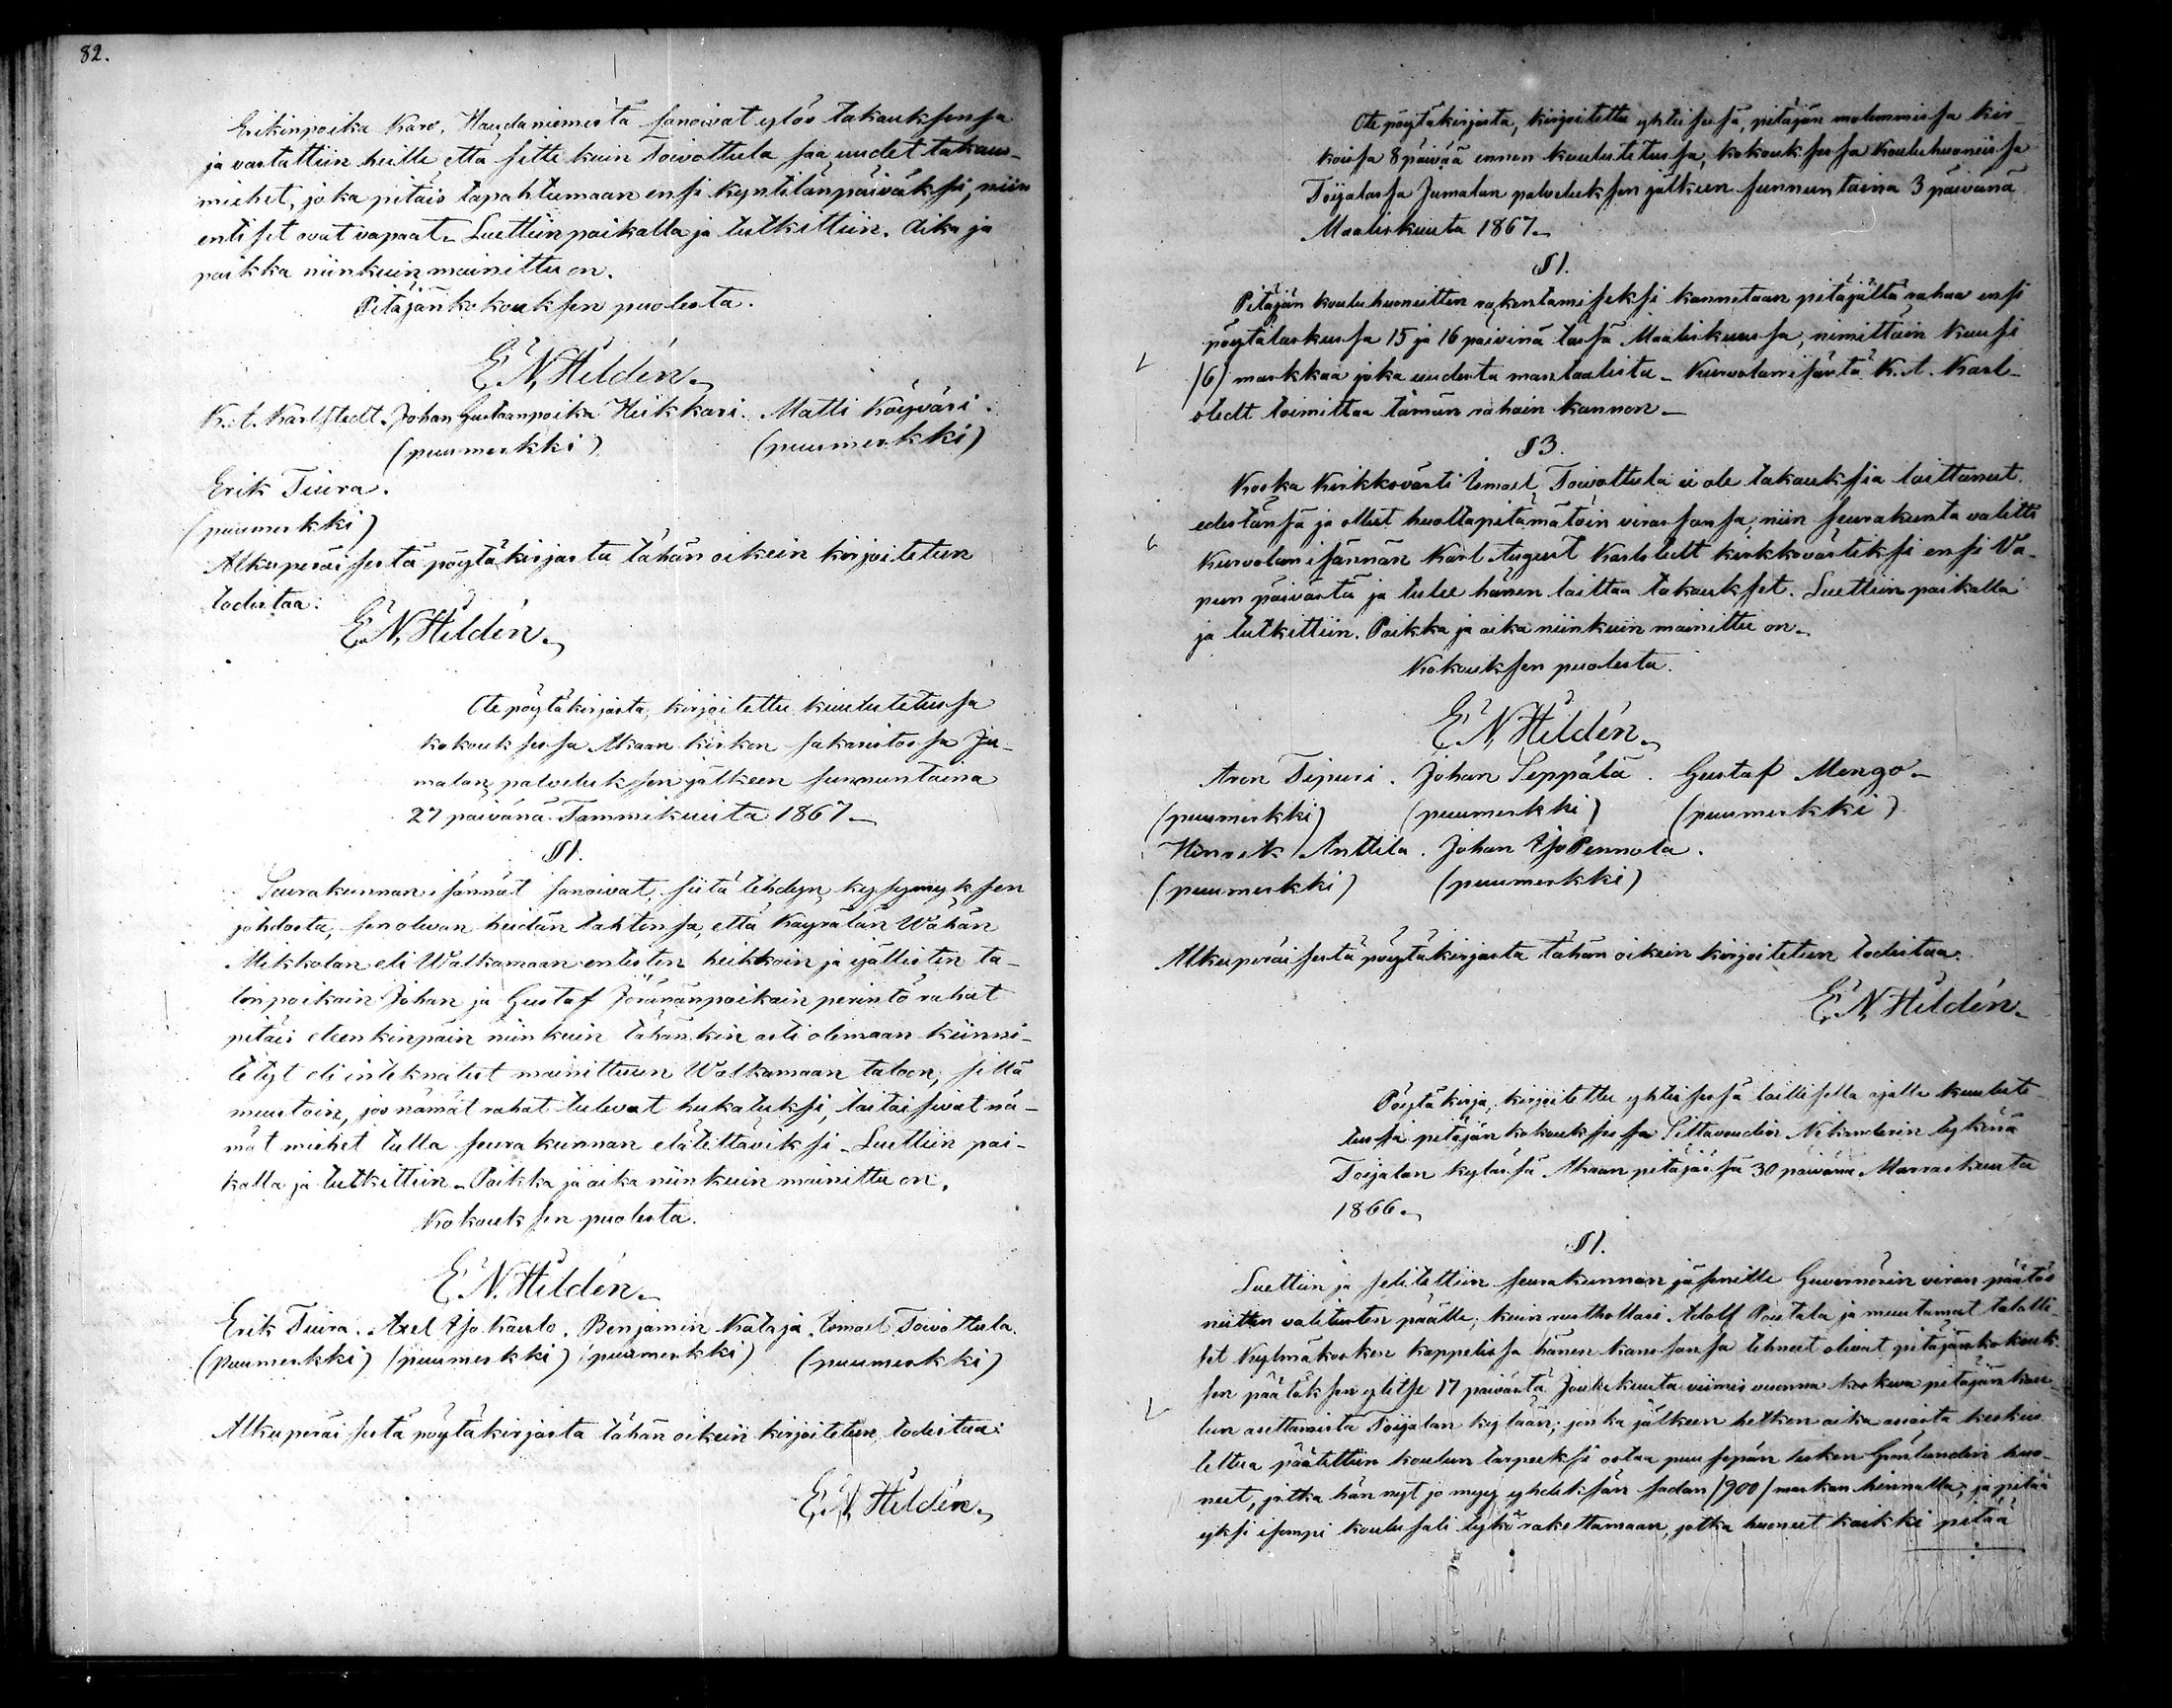 82.
Erikinpoika Karo, Haudaniemestä sanoivat ylös takauksensa
ja vastattiin heille että sitte kuin Toivottula saa uudet takaus-
miehet, joka pitäis tapahtumaan ensi kyntilänpäiväksi, niin
entiset ovat vapaat. Luettiin paikalla ja tutkittiin. Aika ja
paikka niinkuin mainittu on.
Pitäjänkokouksen puolesta.
E. N. Hildén.
K. A. Karlstedt. Johan Gustaanpoika Heikkari. Matti Köyväri.
(puumerkki) (puumerkki)
Erik Tiura.
(puumerkki)
Alkuperäisestä pöytäkirjasta tähän oikein kirjoitetun
todistaa:
E. N. Hildén.
Ote pöytäkirjasta, kirjoitettu kuulutetussa
kokouksessa Akaan kirkon sakaristossa Ju-
malan palveluksen jälkeen sunnuntaina
27 päivänä Tammikuuta 1867.
§ 1.
Seurakunnan isännät sanoivat, siitä tehdyn kysymyksen
johdosta, sen olevan heidän tahtonsa, että Kayrälän Wähän
Mikkolan eli Walkamaan entisten heikkoin ja ijällisten ta-
lonpoikain Johan ja Gustaf Jöranänpoikain perintö rahat
pitäis eteenkinpäin niin kuin tähänkin asti olemaan kiinni-
tetyt eli inteknatut mainittuun Walkamaan taloon, sillä
muutoin, jos nämät rahat tulevat hukatuksi, taitaisivat nä-
mät miehet tulla seurakunnan elätettäviksi. Luettiin pai-
kalla ja tutkittiin. Paikka ja aika niinkuin mainittu on.
Kokouksen puolesta.
E. N. Hildén.
Erik Tiura. Axel Yso Kaulo. Benjamin Kataja. Ismael Toivottula.
(puumerkki) (puumerkki) (puumerkki) (puumerkki)
Alkuperäisestä pöytäkirjasta tähän oikein kirjoitetun todistaa:
E. N. Hildén.
Ote pöytäkirjasta, kirjoitettu yhteisessä, pitäjän molemmissa kir-
koissa 8 päivää ennen kuulutetussa, kokouksessa Kouluhuoneissa
Toijalassa Jumalan palveluksen jälkeen sunnuntaina 3 päivänä
Maaliskuuta 1867.
§ 1.
Pitäjän kouluhuoneitten rakentamiseksi kannetaan pitäjältä rahaa ensi
pöytälaskussa 15 ja 16 päivinä tässä Maaliskuussa, nimittäin kuusi
/6/ markkaa joka uudesta mantaalista. Kurvolan isäntä K. A. Karl-
stedt toimittaa tämän rahain kannon.
§ 3.
Koska Kirkkovärti Ismael Toivottula ei ole takauksia laittanut
edestänsä ja ollut huoltapitämätöin virassansa, niin seurakunta valitti
Kurvolan isännän Karl August Karlstedt kirkkovärtiksi ensi Va-
pun päivästä ja tulee hänen laittaa takaukset. Luettiin paikalla
ja tutkittiin. Paikka ja aika niinkuin mainittu on.
Kokouksen puolesta.
E. N. Hildén.
Aron Tipuri. Johan Seppälä. Gustaf Mengo.
(puumerkki) (puumerkki) (puumerkki)
Hinrik Anttila. Johan Yso Pennola.
(puumerkki) (puumerkki)
Alkuperäisestä pöytäkirjasta tähän oikein kirjoitetun todistaa:
E. N. Hildén.
Pöytäkirja, kirjoitettu yhteisessä laillisella ajalla kuulute-
tussa pitäjän kokouksessa Siltavoudin Nikanderin tykönä
Toijalan kylässä Akaan pitäjässä 30 päivänä Marraskuuta
1866.
§ 1.
Luettiin ja selitettiin seurakunnan jäsenille Guvernörin viran päätös
niitten valitusten päälle, kuin rusthollari Adolf Poutala ja muutamat talolli-
set Kylmäkosken kappelissa hänen kanssansa tehneet olivat pitäjänkokouk-
sen päätöksen ylitse 17 päivästä Joulukuuta viimis vuonna koskeva pitäjän kou-
lun asettamista Toijalan kylään; jonka jälkeen hetken aika asiasta keskus-
teltua päätettiin koulun tarpeeksi ostaa puusepän lesken Grönlundin huo-
neet, jotka hän nyt jo myy yhdeksän sadan /900/ markan hinnalla, ja pitää
yksi isompi koulusali tykö rakettamaan, jotka huoneet kaikki pitää